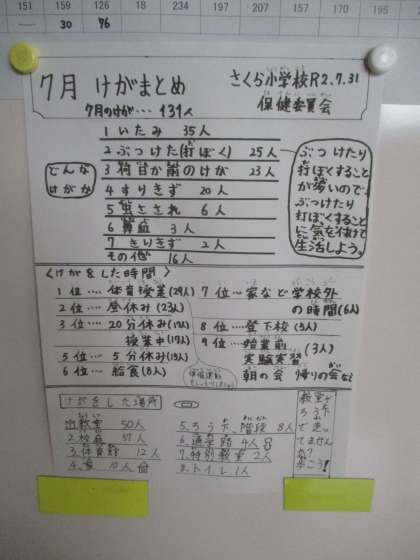 151 159 126 18 234 197 207 157 170 195
30 76
7月 けがまとめ
さくら小学校R2.7.31
7月のけが… 131人
保健委員会
どんな
けがか
1 いたみ 35人
2 ぶつけた(打ぼく) 25人
3 何日か前のけが 23人
4 すりきず 20人
5 虫さされ 6人
6 鼻血 3人
7 きりきず 2人
その他 16人
ぶつけたり
打ぼくすること
が多いので
ぶつけたり
打ぼくすること
に気を付けて
生活しよう。
〈けがをした時間〉
1位…体育授業(29人)
2位…昼休み(23人)
3位…20分休み
授業中
5位…5分休み
6位…給食(8人)
7位…家など学校外
の時間(6人)
8位…登下校(5人)
9位…始業前
(3人)
朝の会 帰りの会など
けがをした場所
1.教室 50人
2.校庭 37人
3.体育館 12人
4.家
5.ろう下、階段 8人
6.通学路 4人
7.特別教室 2人
8.トイレ 1人
教室や
ろう下
で走っ
てません
か?
歩こう!